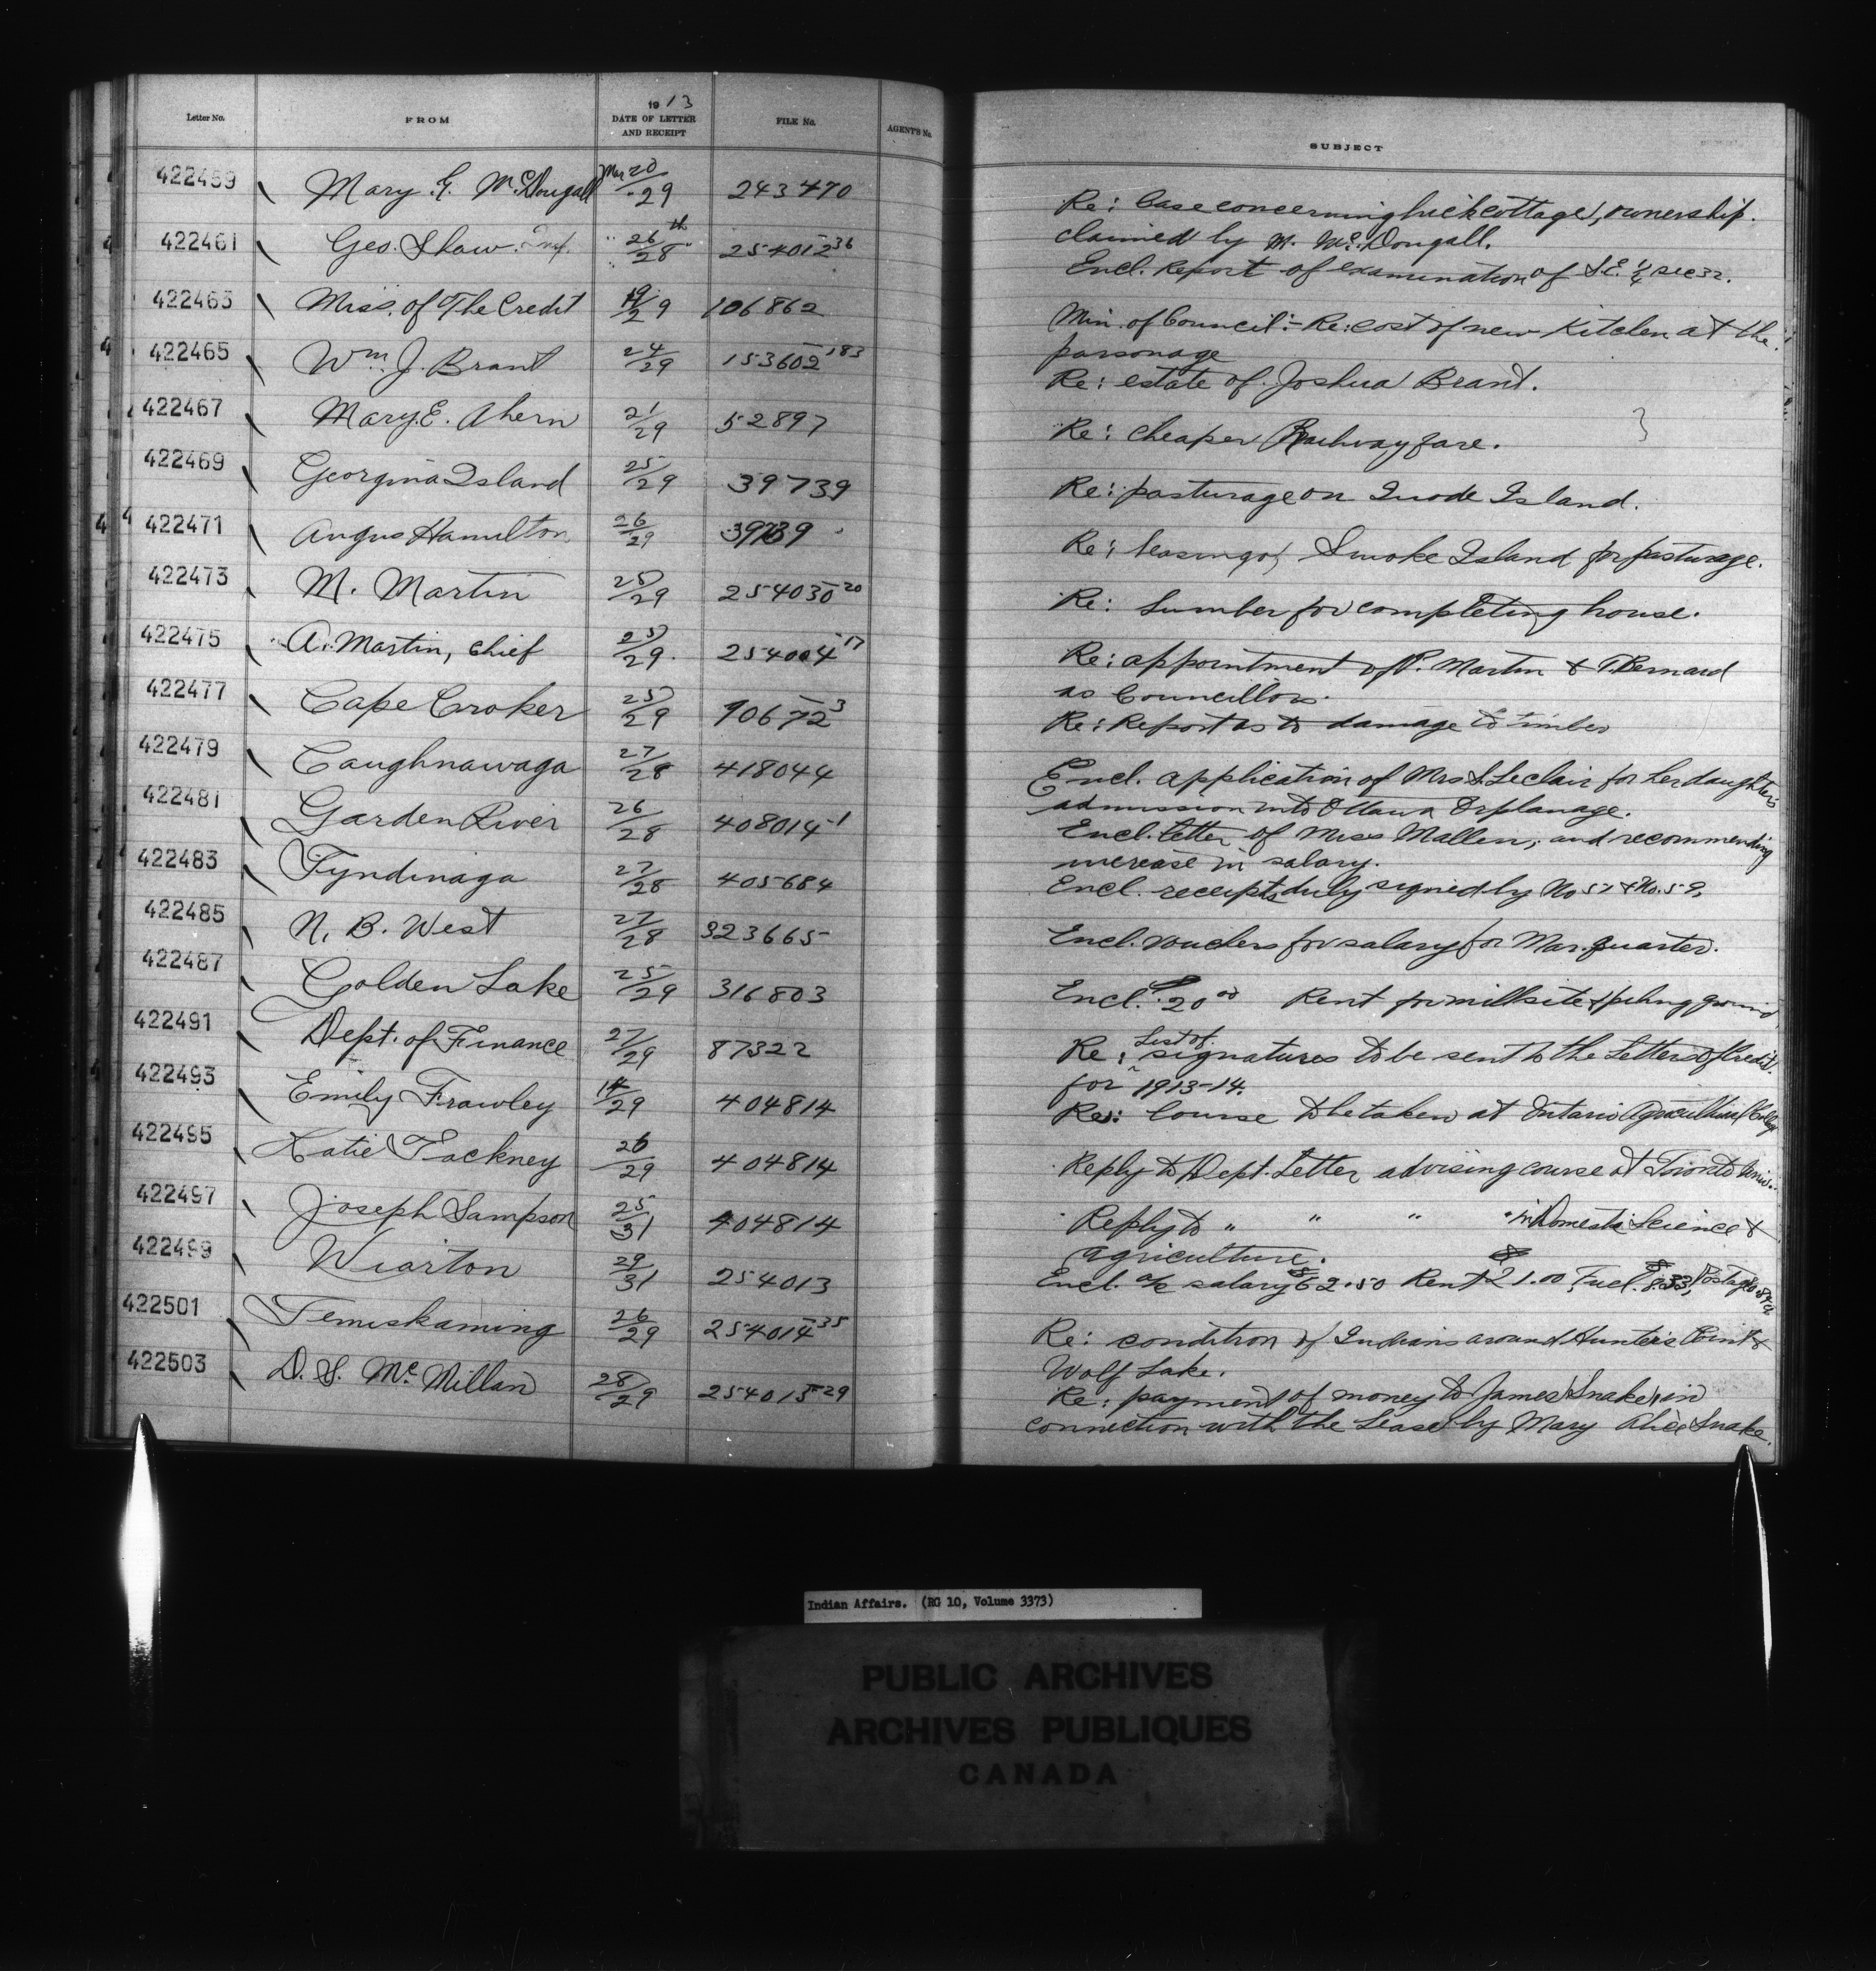 Letter No. FROM 1913 DATE OF LETTER AND RECEIPT FILE No. AGENT'S No. SUBJECT
422459 Mary G. McDougall Mar 20/29 243470 Re: Case concerning brick cottage, ownership
claimed by M. McDougall.
422461 Geo. Shaw " 26th/28 " 254012-36 Encl. Report of examination of S.E. ¼ sec 32.
422463 Miss. of The Credit 19/29 106862 Min. of Council:- Re: cost of new Kitchen at the
parsonage
422465 Wm. J. Brant 24/29 153602-183 Re: estate of Joshua Brant.
422467 Mary E. Ahern 21/29 52897 Re: cheaper Railway fare.
422469 Georgina Island 25/29 39739 Re: pasturage on Island.
422471 Angus Hamilton 26/29 39739 Re: leasing of Smoke Island for pasturage.
422473 M. Martin 25/29 254030-20 Re: Lumber for completing house.
422475 A. Martin, Chief 25/29 254004-17 Re: appointment of P. Martin & T. Bernard
as Councillors.
422477 Cape Croker 25/29 90672-3 Re: Report as to damage to timber
422479 Caughnawaga 27/28 418044 Encl. application of Mrs L. Leclair for her daughters
admission into Ottawa Orphanage.
422481 Garden River 26/28 408014-1 Encl. letter of Miss Mallen, and recommending
increase in salary.
422483 Tyndinaga 27/28 405684 Encl. receipts duly signed by No 57 & No. 59,
422485 N. B. West 27/28 323665 Encl. vouchers for salary for Mar. quarter.
422487 Golden Lake 25/29 316803 Encl. $20.00 Rent for millsite & piling ground
422491 Dept. of Finance 27/29 87322 Re: List of signatures to be sent to the Letters of Credit
for 1913-14.
422493 Emily Frawley 14/29 404814 Re: Course to be taken at Ontario Agricultural College
422495 Katie Tackney 26/29 404814 Reply to Dept. Letter advising course at Toronto Univ.
422497 Joseph Sampson 25/31 404814 Reply to " " " " in Domestic Science &
agriculture.
422499 Wiarton 29/31 254013 Encl. a/c salary $62.50 Rent $21.00, Fuel. $8.33, Postage
422501 Temiskaming 26/29 254014-35 Re: condition of Indians around Hunters Point &
Wolf Lake.
422503 D. S. McMillan 28/29 254015-29 Re: payment of money to James Snake, in
connection with the Lease by Mary Alice Snake.
Indian Affairs. (RG 10, Volume 3373)
PUBLIC ARCHIVES
ARCHIVES PUBLIQUES
CANADA